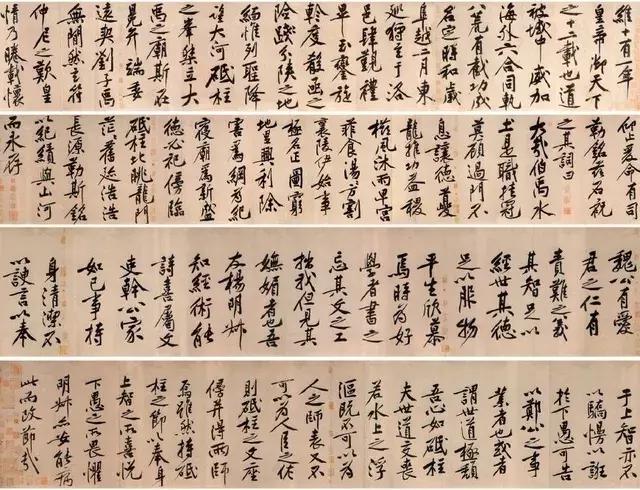 維十有一年
皇帝御天下
之十二載也道
被域中威加
海外六合同軌
八荒有截功成
名定時和歲
阜越二月東
巡狩至于洛
邑肆覲禮
畢玉鑾旋
軫度崤函之
險踐分陝之地
緬惟列聖降
望大河砥柱
之峯桀立大
禹之廟斯在
晃弁端委
遠契劉子禹
無閒然玄符
仲尼之歎皇
情乃睠載懷
仰止爰命有司
勒銘茲石祝
之其詞曰
大哉伯禹水
土是職挂冠
莫顧過門不
息讓德夔
龍推功益稷
櫛風沐雨卑宮
菲食湯湯方割
襄陵伊始事
極名正圖窮
地里興利除
害為綱為紀
寢廟為新盛
德必祀傍臨
砥柱北眺龍門
茫茫舊迹浩浩
長源勒斯銘
以紀績與山河
而永存
魏公有愛
君之仁有
責難之義
其智足以
經世其德
足以服物
平生欣慕
焉時為好
學者書之
忘其文之工
拙我但見其
嫵媚者也吾
友楊明叔
知經術能
詩喜屬文
吏幹公家
如己事持
身清潔不
以諛言以奉
于上智亦不
以驕慢以誑
於下愚可告
以鄭公之事
業者也或者
謂世道極頹
吾心如砥柱
夫世道交喪
若水上之浮
漚既不可以為
人之師表又不
可以為人臣之佐
則砥柱之文座
傍並得兩師
焉雖然持
柱之節以奉身
上智之所喜悅
下愚之所畏懼
明叔亦安能病
此而改節哉